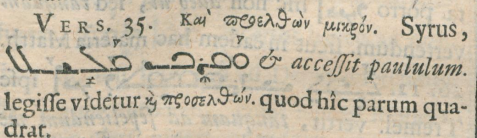 VERS. 35. Καὶ προελθὼν μικρόν. Syrus,
ܘܩܪܒ ܩܠܝܠ & acceſſit paululum.
legiſſe videtur ϗ προσελθών. quod hîc parum qua-
drat.